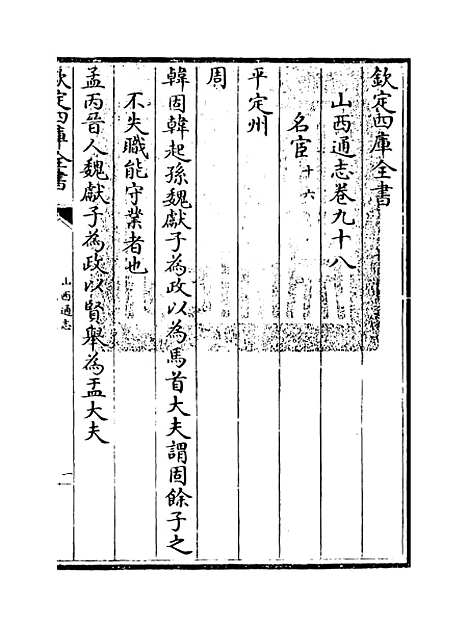 欽定四庫全書
山西通志卷九十八
名宦十六
平定州
周
韓固韓起孫魏獻子為政以為馬首大夫謂固餘子之
不失職能守業者也
孟丙晉人魏獻子為政以賢舉為盂大夫
欽定四庫全書
山西通志
一